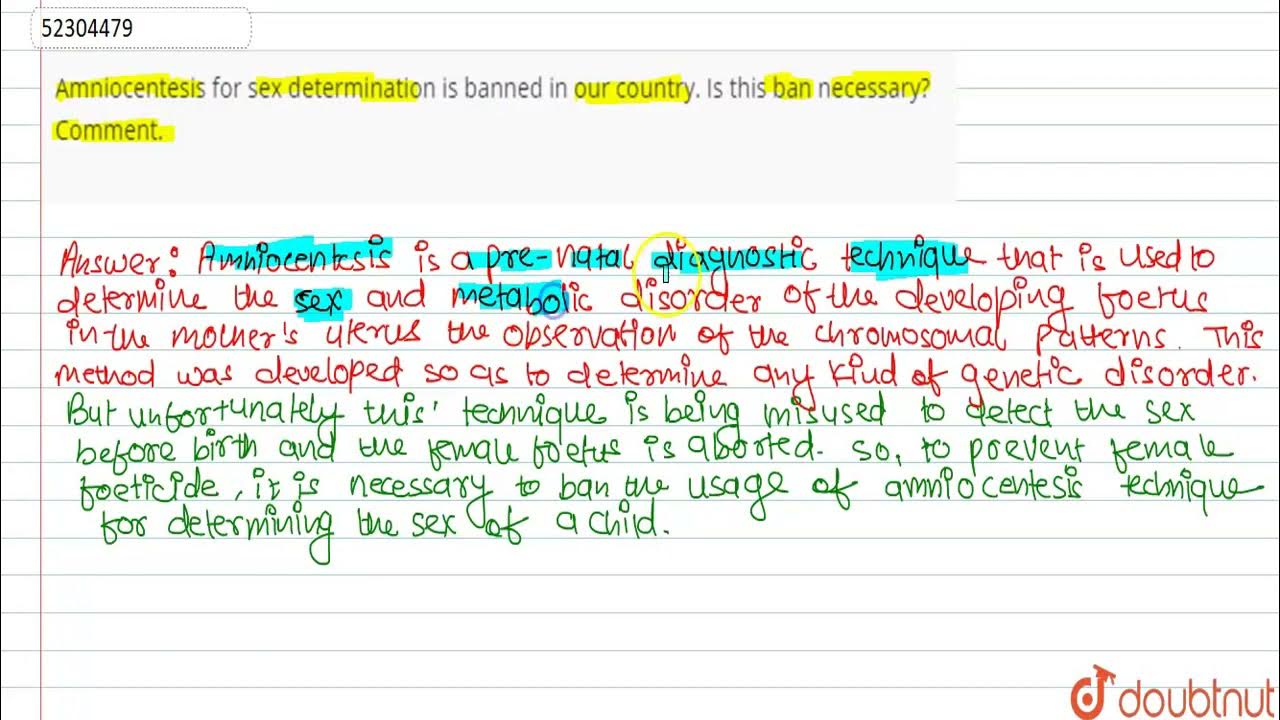 52304479
Amniocentesis for sex determination is banned in our country. Is this ban necessary?
Comment.
Answer: Amniocentesis is a pre-natal diagnostic technique that is used to
determine the sex and metabolic disorder of the developing foetus
in the mother's uterus the observation of the chromosomal patterns. This
method was developed so as to determine any kind of genetic disorder.
But unfortunately this' technique is being misused to detect the sex
before birth and the female foetus is aborted. So, to prevent female
foeticide, it is necessary to ban the usage of amniocentesis technique
for determining the sex of a child.
doubtnut